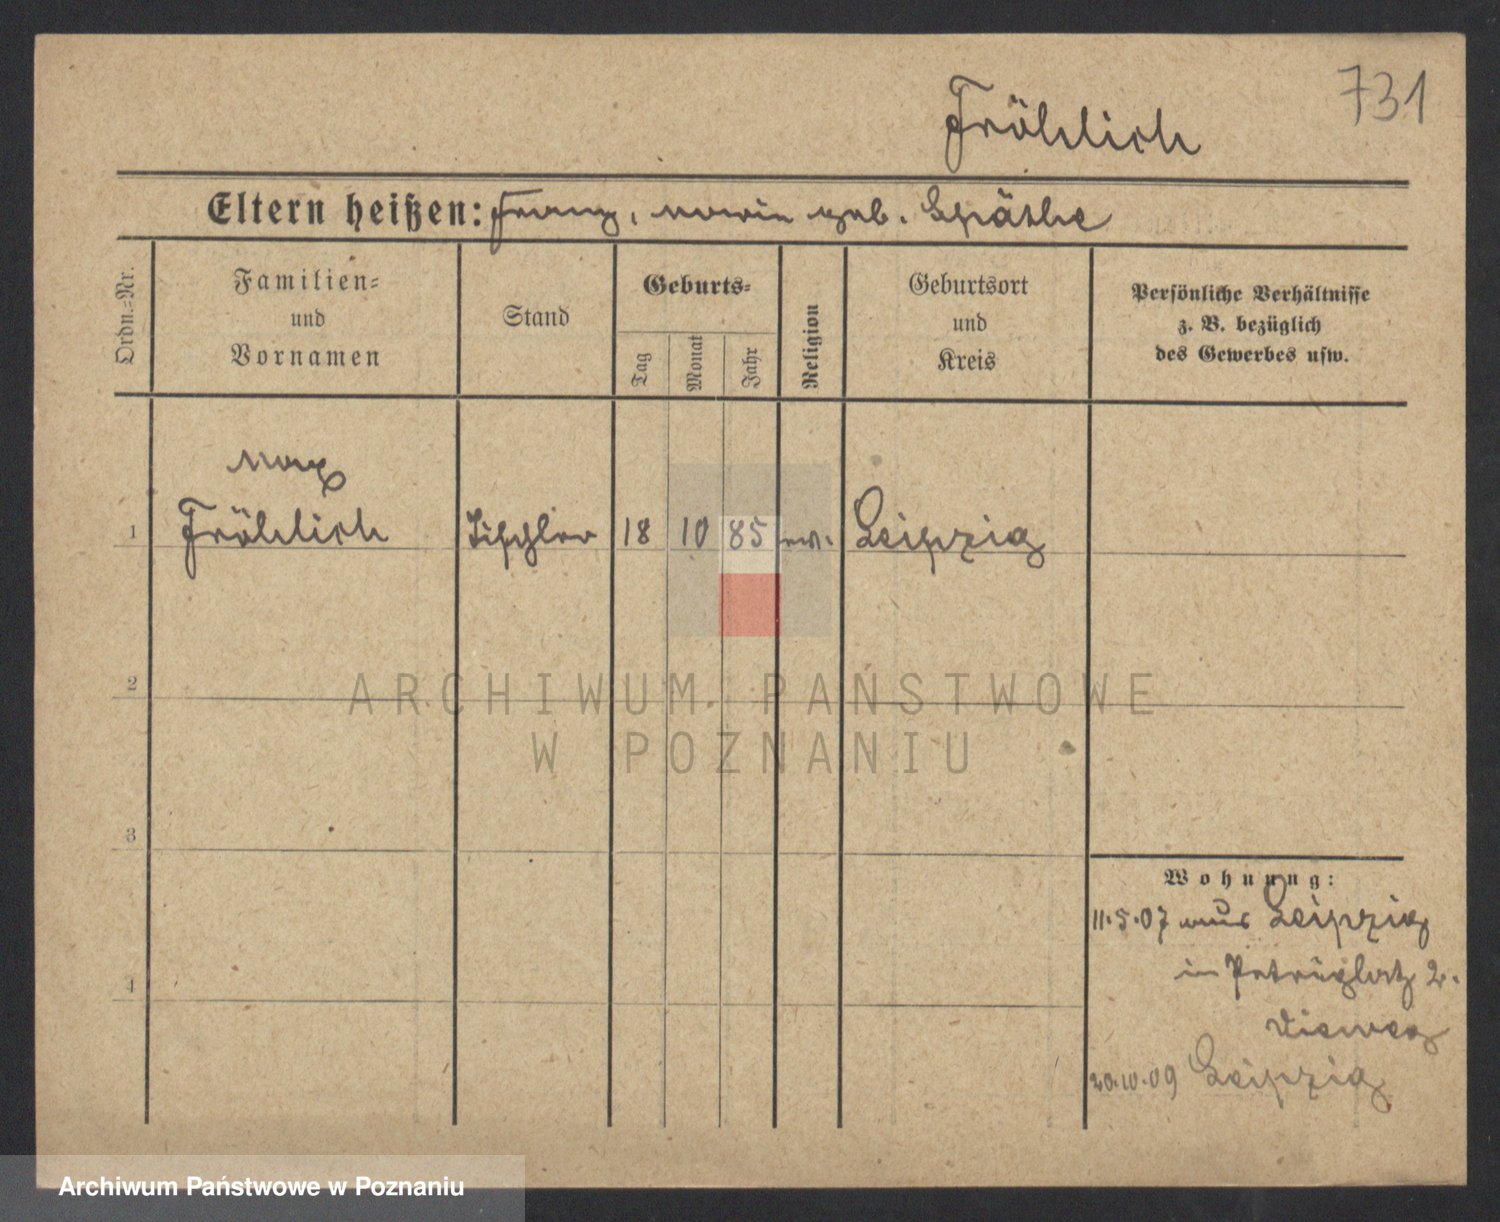 731
Fröhlich
Eltern heißen: Franz, Marie geb. Späthe
Ordn.-Nr.
Familien-
und
Vornamen
Stand
Geburts-
Tag
Monat
Jahr
Religion
Geburtsort
und
Kreis
Persönliche Verhältnisse
z. B. bezüglich
des Gewerbes usw.
Max
1 Fröhlich Tischler 18 10 85 ev. Leipzig
2
3
4
Wohnung:
11.5.07 aus Leipzig
in 2.
Vieweg
20.10.09 Leipzig
ARCHIWUM PAŃSTWOWE
W POZNANIU
Archiwum Państwowe w Poznaniu